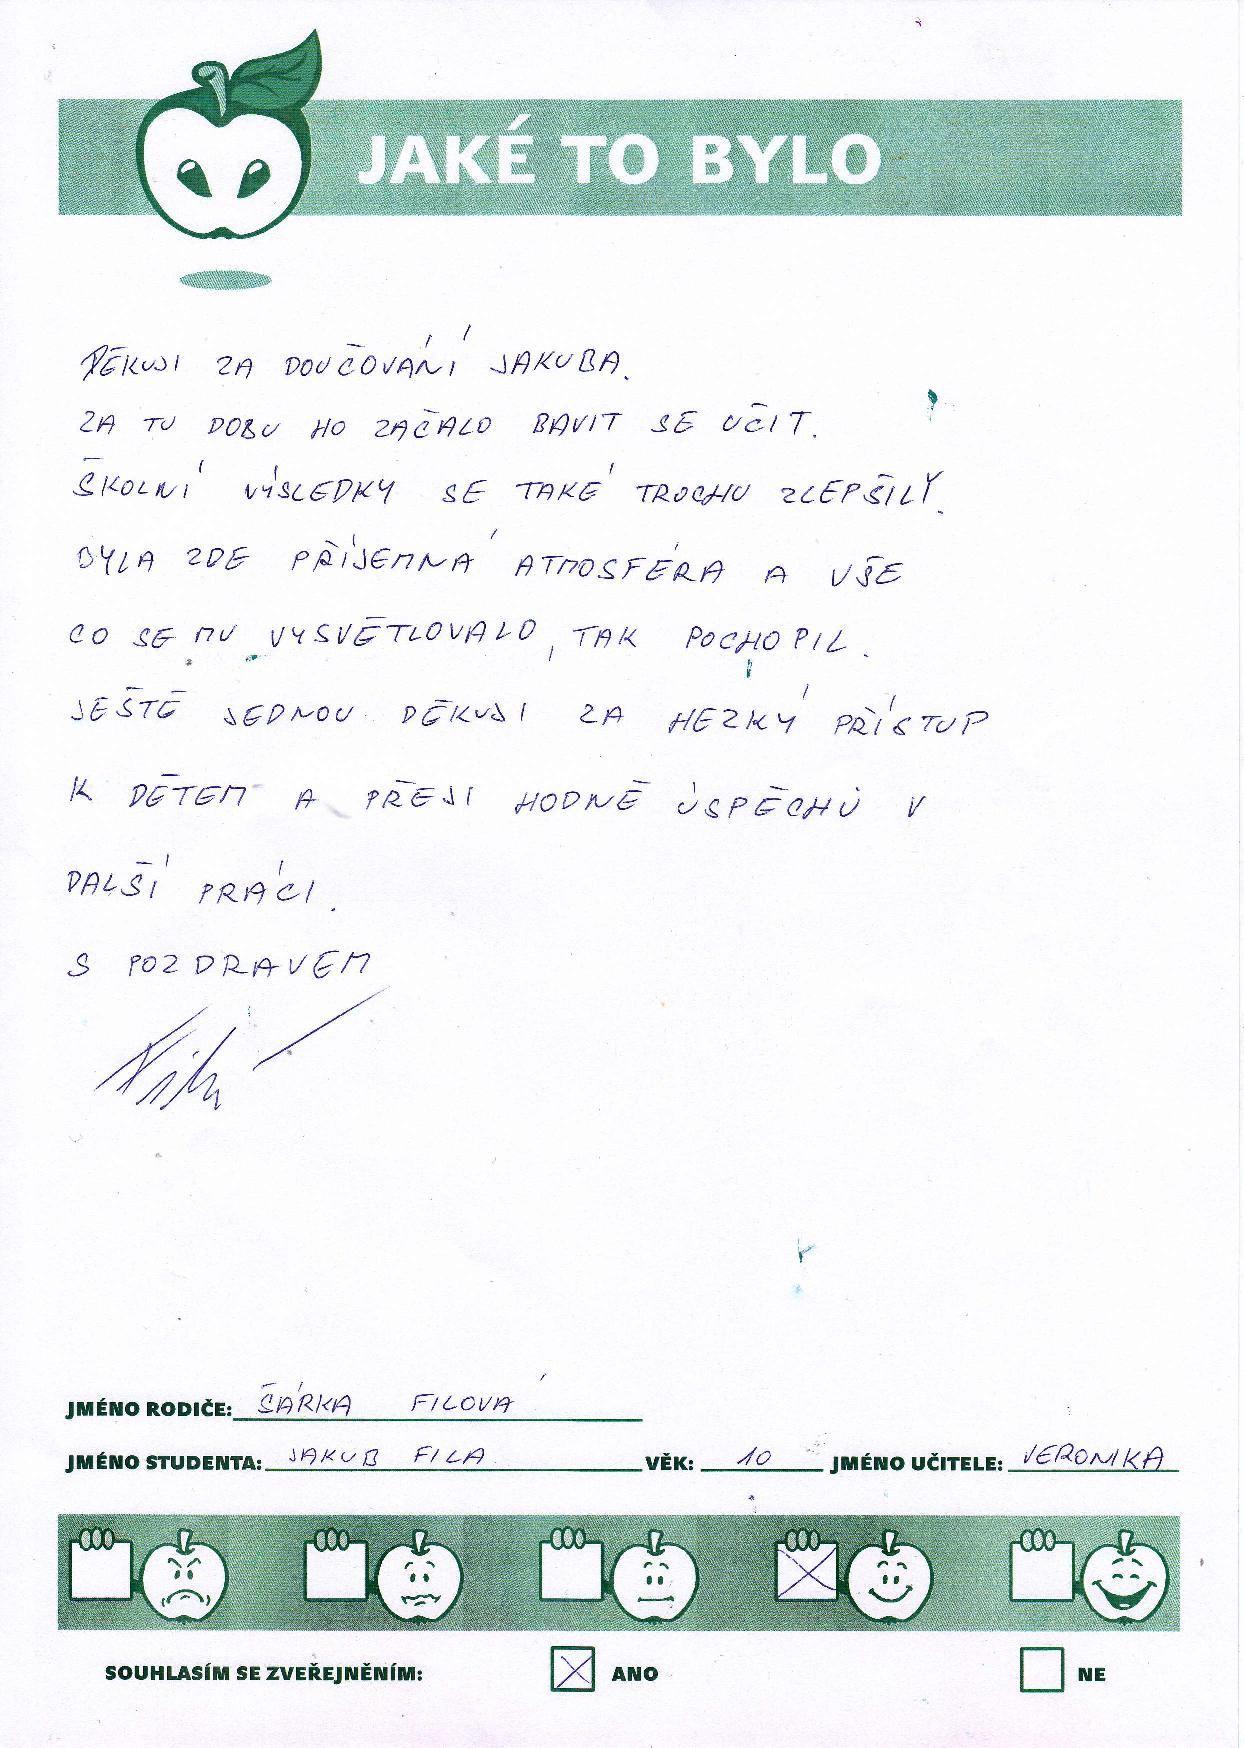 JAKÉ TO BYLO
DĚKUJI ZA DOUČOVÁNÍ JAKUBA.
ZA TU DOBU HO ZAČALO BAVIT SE UČIT.
ŠKOLNÍ VÝSLEDKY SE TAKÉ TROCHU ZLEPŠILY.
BYLA ZDE PŘÍJEMNÁ ATMOSFÉRA A VŠE
CO SE MU VYSVĚTLOVALO, TAK POCHOPIL.
JEŠTĚ JEDNOU DĚKUJI ZA HEZKÝ PŘÍSTUP
K DĚTEM A PŘEJI HODNĚ ÚSPĚCHŮ V
DALŠÍ PRÁCI.
S POZDRAVEM
JMÉNO RODIČE: ŠÁRKA FILOVÁ
JMÉNO STUDENTA: JAKUB FILA VĚK: 10 JMÉNO UČITELE: VERONIKA
SOUHLASÍM SE ZVEŘEJNĚNÍM: ANO NE